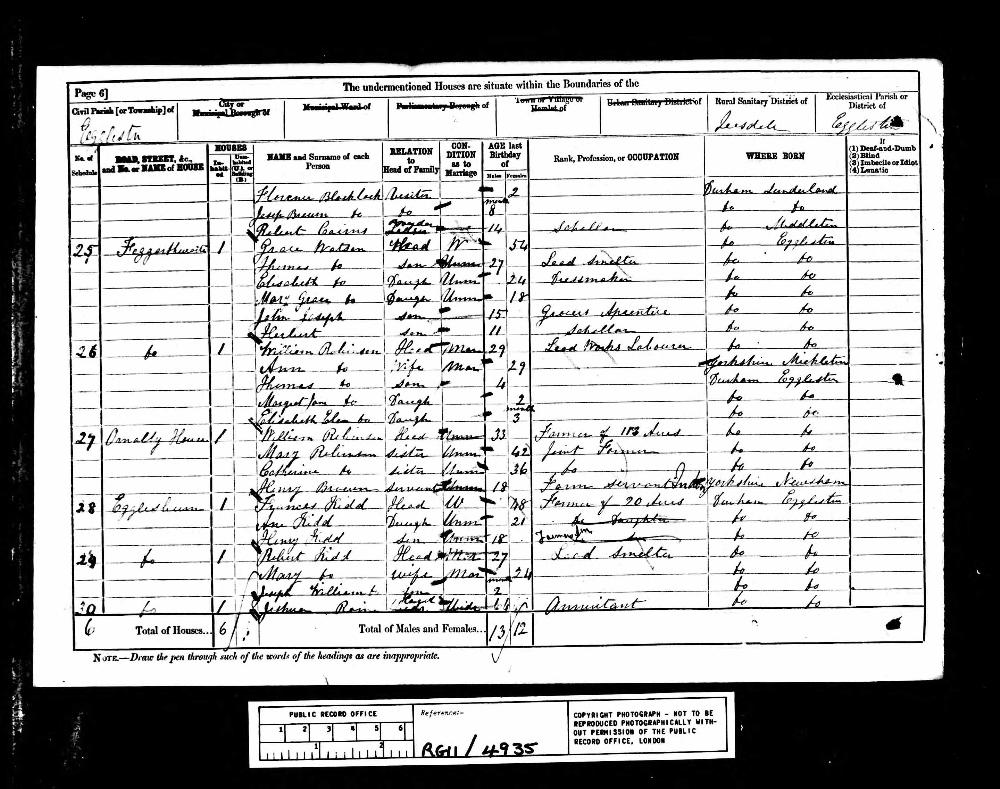 The undermentioned Houses are situate within the Boundaries of the
Page 6]
Civil Parish [or Township] of
City or Municipal Borough of
Municipal Ward of
Parliamentary Borough of
Town or Village or Hamlet of
Urban Sanitary District of
Rural Sanitary District of
Ecclesiastical Parish or District of
No. of Schedule
ROAD, STREET, &c., and No. or NAME of HOUSE
HOUSES
Inhabited
Uninhabited (U.), or Building (B.)
NAME and Surname of each Person
RELATION to Head of Family
CONDITION as to Marriage
AGE last Birthday of
Males
Females
Rank, Profession, or OCCUPATION
WHERE BORN
If
(1) Deaf-and-Dumb
(2) Blind
(3) Imbecile or Idiot
(4) Lunatic
Florence Blacklock Visitor 2 Durham Sunderland
Brown do do 8 do do
Robert Cairns 14 Schollar do Middleton
25 1 Grace Watson Head W 54 do Eggleston
Thomas do son Unm 27 Lead Smelter do do
Elisabeth do Daugh Unm 24 Dressmaker do do
Mary Grace do Daugh Unm 18 do do
John Joseph son 15 Grocers Aprentice do do
Herbert son 11 Schollar do do
26 do 1 William Robinson Head Mar 29 Lead Works Labourer do do
Ann do Wife Mar 29 Yorkshire Mickleton
Thomas do son 4 Durham Eggleston
Margret Jane do Daugh 2 do do
Elisabeth Elen do Daugh month 3 do do
27 House 1 William Robinson Head Unm 33 Farmer of Acres do do
Mary Robinson sister Unm 42 Joint Farmer do do
Catherine do sister Unm 36 do do do
Henry Brown servant Unm 18 Farm Servant Yorkshire Newsham
28 1 Frances Kidd Head W 48 Farmer of 20 Acres Durham Eggleston
Ann Kidd Daugh Unm 21 do Daughter do do
Henry Kidd son Unm 18 Farmers son do do
29 do 1 Robert Kidd Head Mar 27 Lead Smelter do do
Mary do wife Mar 24 do do
Joseph William son month 2 do do
30 do 1 Joshua Annuitant do do
6 Total of Houses... 6 Total of Males and Females... 13 12
NOTE.—Draw the pen through such of the words of the headings as are inappropriate.
PUBLIC RECORD OFFICE
1 2 3 4 5 6
1 2
Reference:-
RG11/4935
COPYRIGHT PHOTOGRAPH - NOT TO BE
REPRODUCED PHOTOGRAPHICALLY WITH-
OUT PERMISSION OF THE PUBLIC
RECORD OFFICE, LONDON